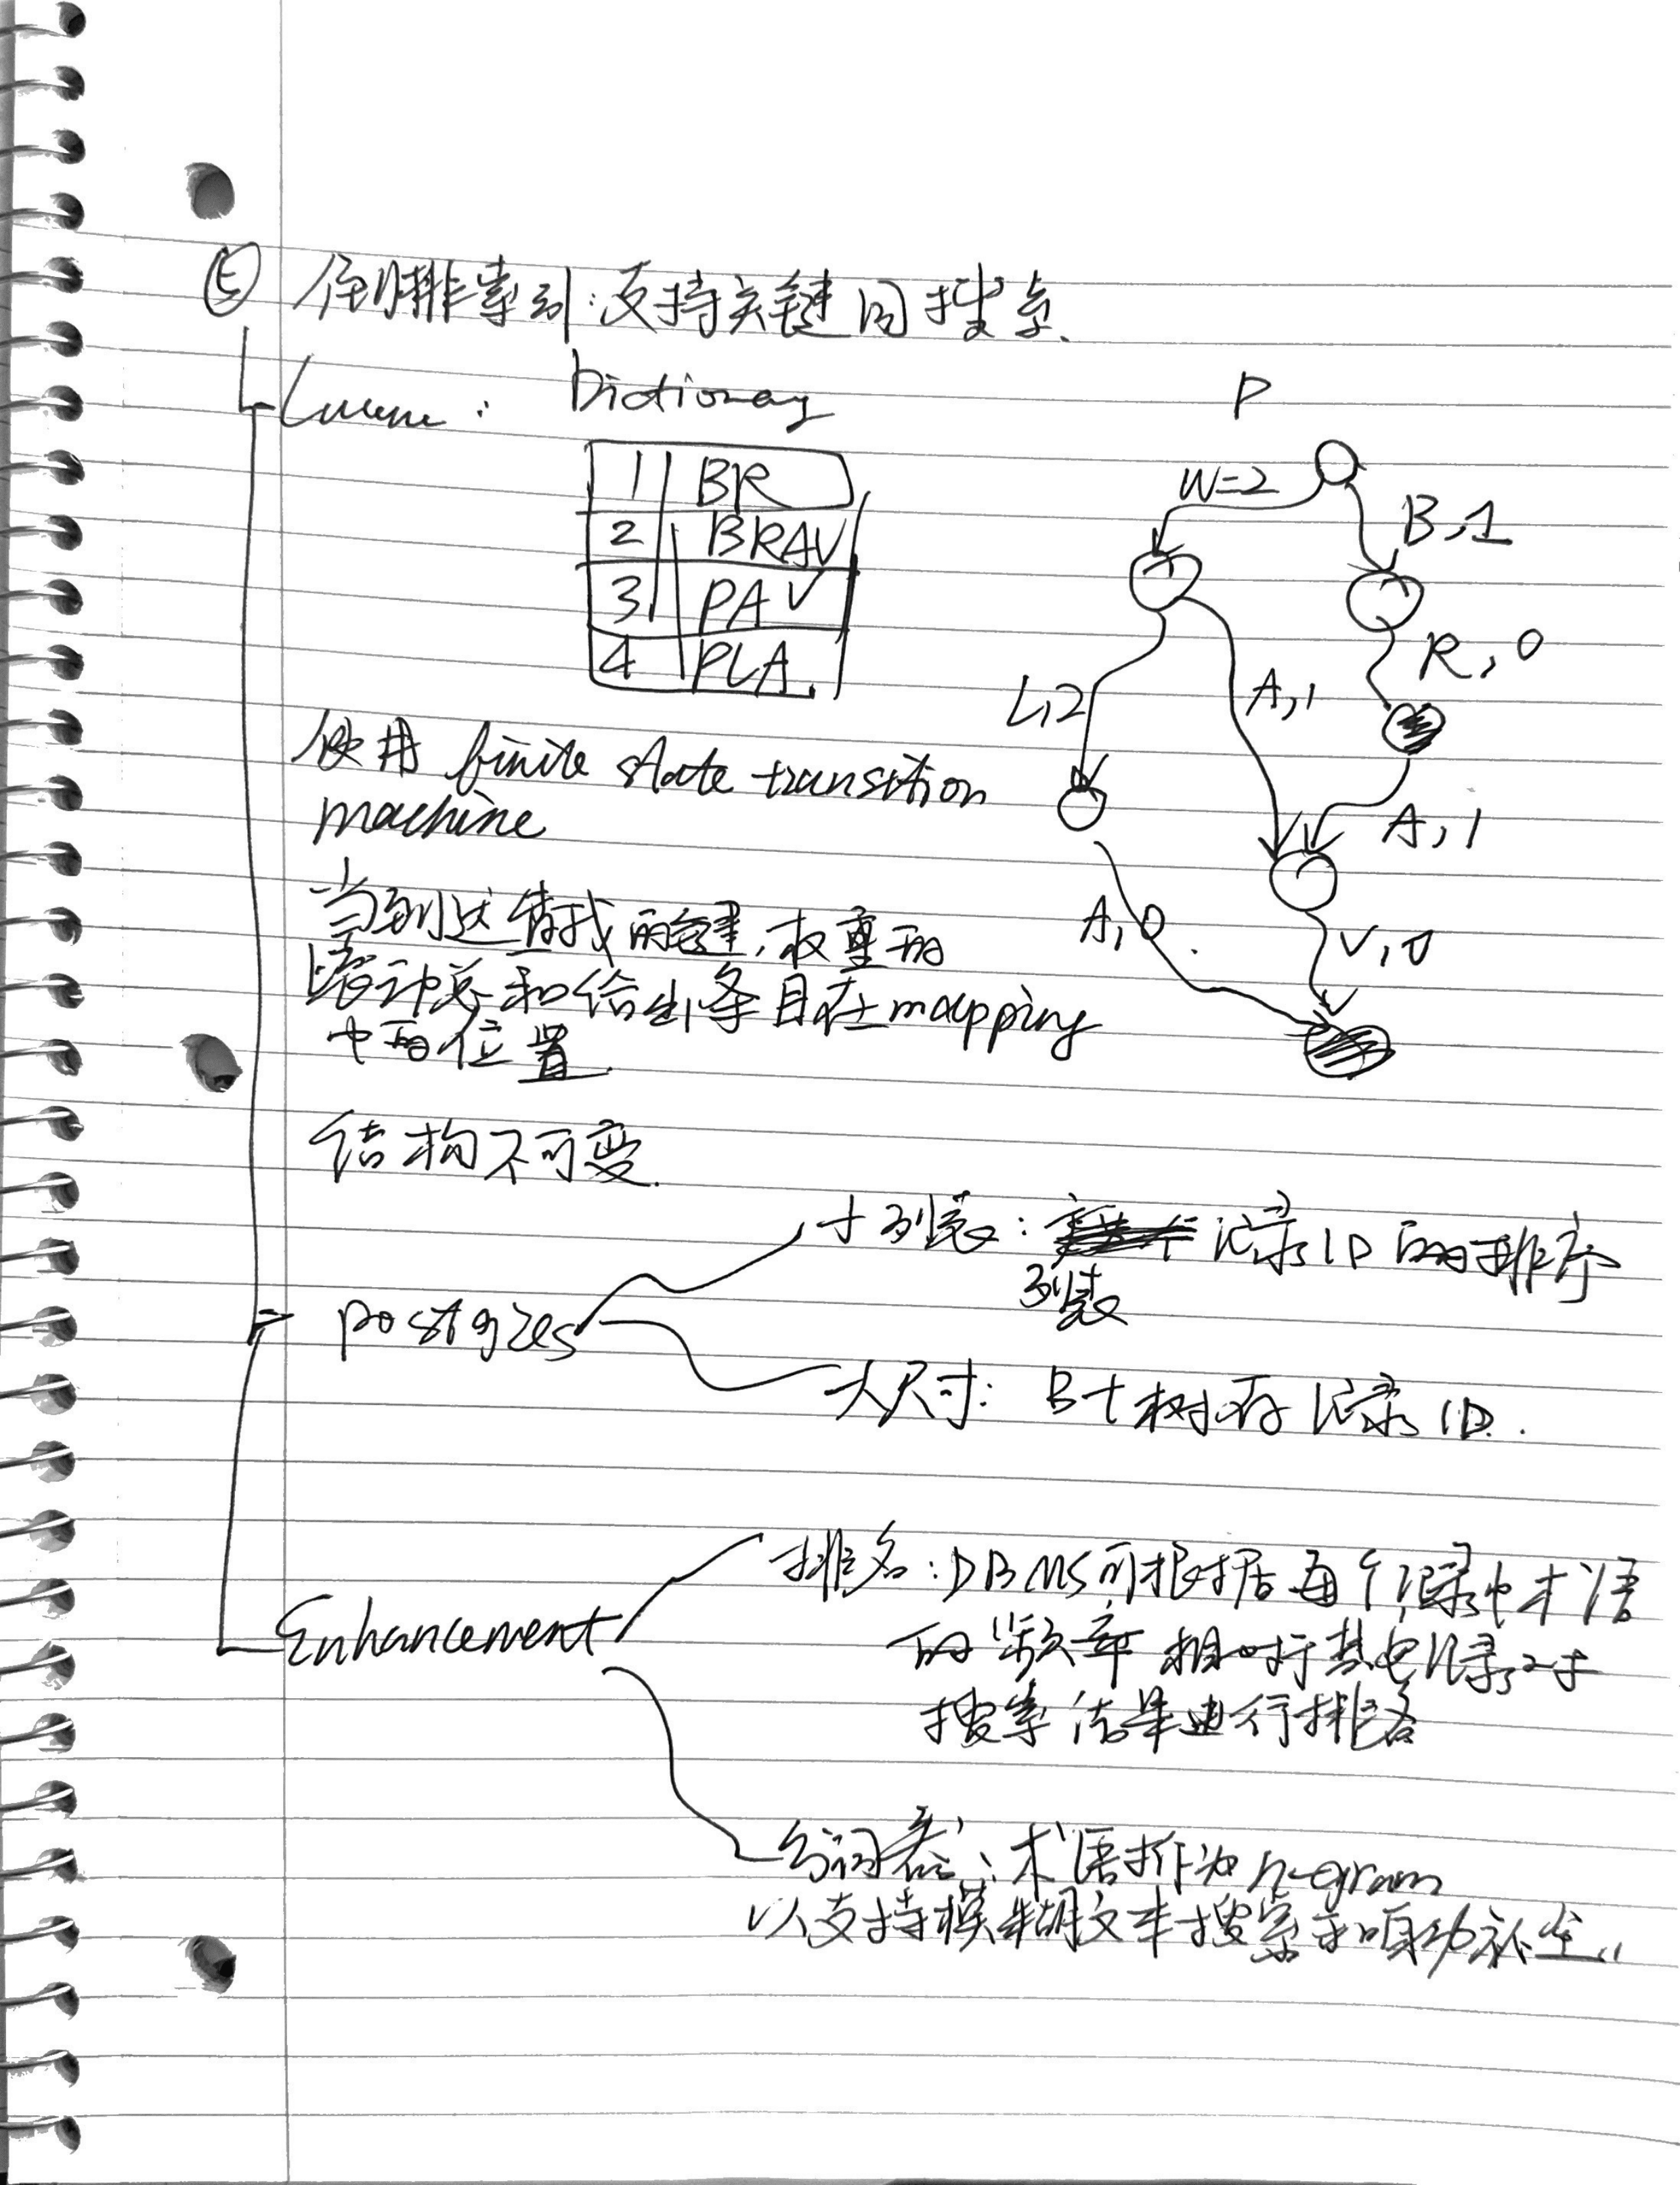 ⑤ 倒排索引:支持关键词搜索.
Lucene: Dictionary
P
1 BR
2 BRAV
3 PAV
4 PLA.
W=2
B,1
R,0
L,2
A,1
A,1
A,0.
V,0
使用 finite state transition
machine
当到达查找的键,权重的
累计总和给出条目在mapping
中的位置.
结构不可变.
postgres
小列表: 记录ID的排序
列表
大尺寸: B+树存记录ID.
Enhancement
排名:DBMS可根据每个记录中术语
的频率相对于其它记录对
搜索结果进行排名
分词器:术语拆为n-gram
以支持模糊文本搜索和自动补全..